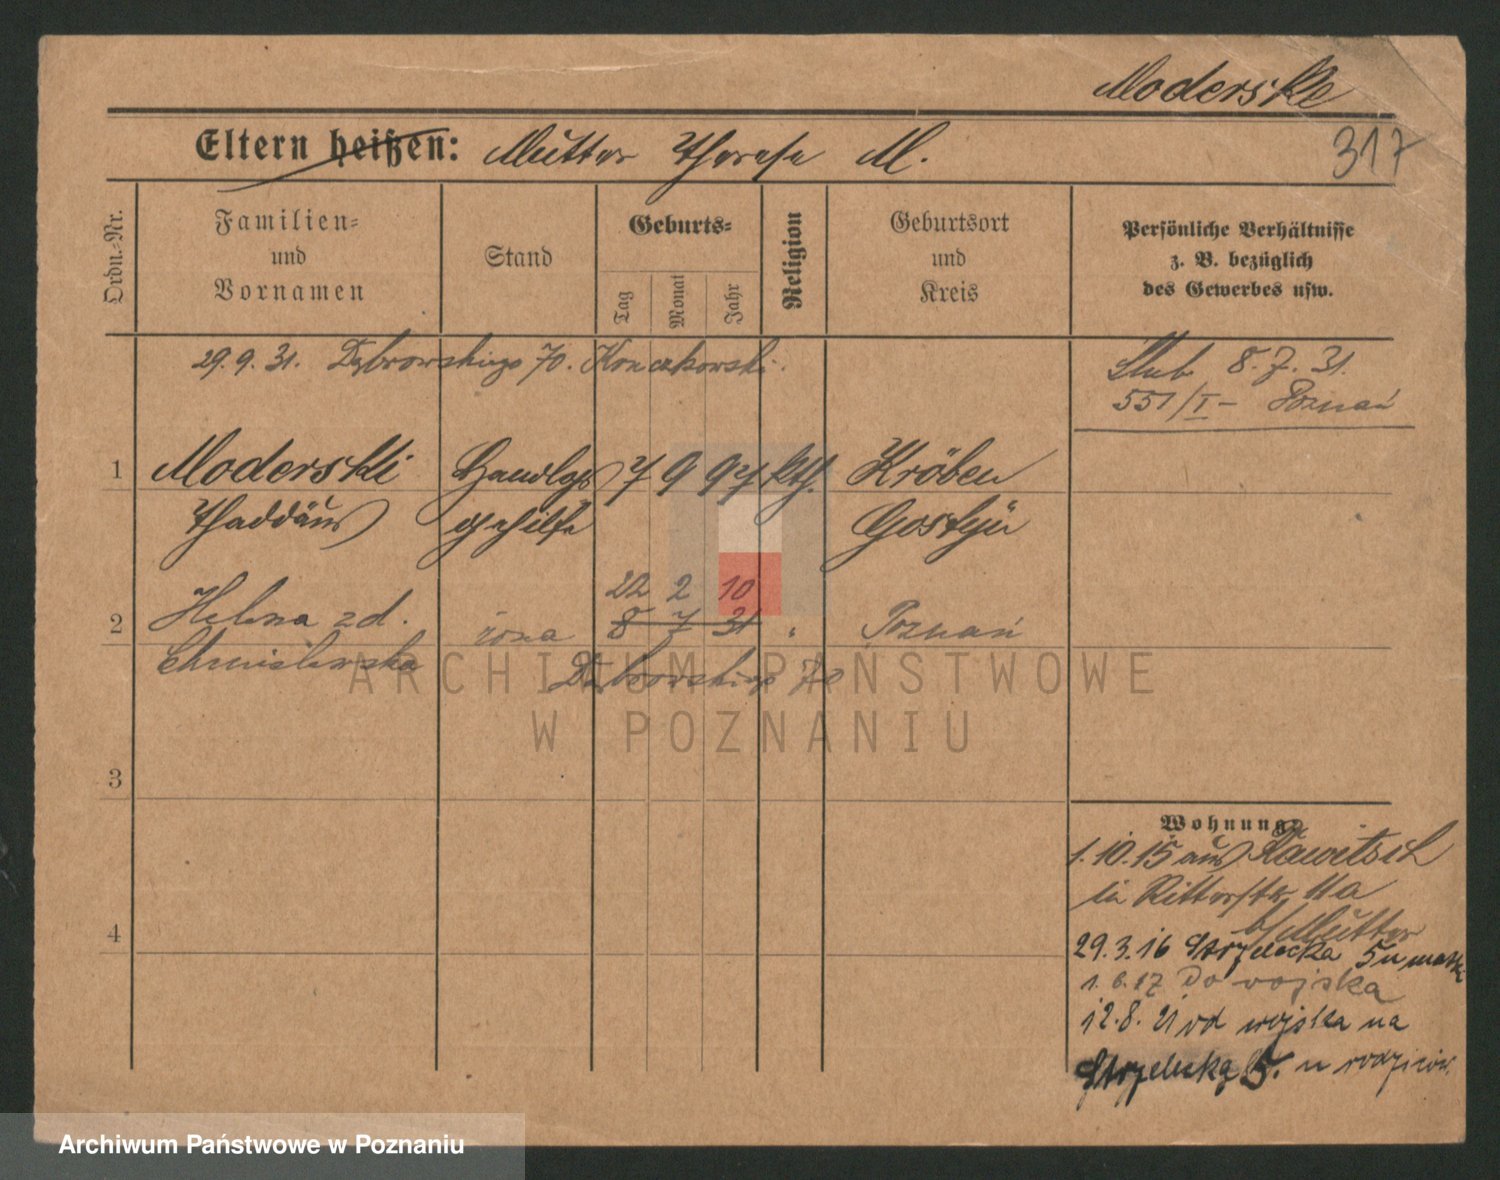 Moderske
317
Eltern heißen: Mutter Therese M.
Ordn.-Nr.
Familien-
und
Vornamen
Stand
Geburts-
Tag
Monat
Jahr
Religion
Geburtsort
und
Kreis
Persönliche Verhältnisse
z. B. bezüglich
des Gewerbes usw.
29.9.31. Dąbrowskiego 70. Konczkowski.
Ślub 8.7.31.
551/I – Poznań
1 Moderski Handlgs 7 9 97 kth. Kröben
Thaddäus gehilfe Gostyń
22 2 10
2 Helena z d. żona 8 7 31 " Poznań
Chmielewska Dąbrowskiego 70
3
4
Wohnung
1.10.15 aus Rawitsch
in Ritterstr. 11a
b/Mutter
29.3.16 Strzelecka 5 u matki
1.6.17 Do wojska
12.8.21 od wojska na
Strzelecką 5. u rodziców.
ARCHIWUM PAŃSTWOWE
W POZNANIU
Archiwum Państwowe w Poznaniu